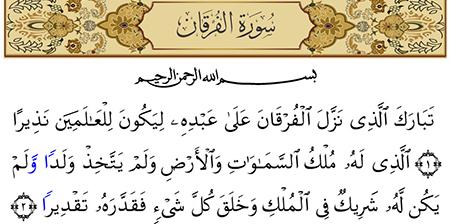 سُورَةُ الفُرْقَانِ
بِسْمِ اللهِ الرَّحْمٰنِ الرَّحِيمِ
تَبَارَكَ ٱلَّذِى نَزَّلَ ٱلْفُرْقَانَ عَلَىٰ عَبْدِهِۦ لِيَكُونَ لِلْعَـٰلَمِينَ نَذِيرًا
﴿١﴾ ٱلَّذِى لَهُۥ مُلْكُ ٱلسَّمَـٰوَٰتِ وَٱلْأَرْضِ وَلَمْ يَتَّخِذْ وَلَدًا وَلَمْ
يَكُن لَّهُۥ شَرِيكٌ فِى ٱلْمُلْكِ وَخَلَقَ كُلَّ شَىْءٍ فَقَدَّرَهُۥ تَقْدِيرًا ﴿٢﴾